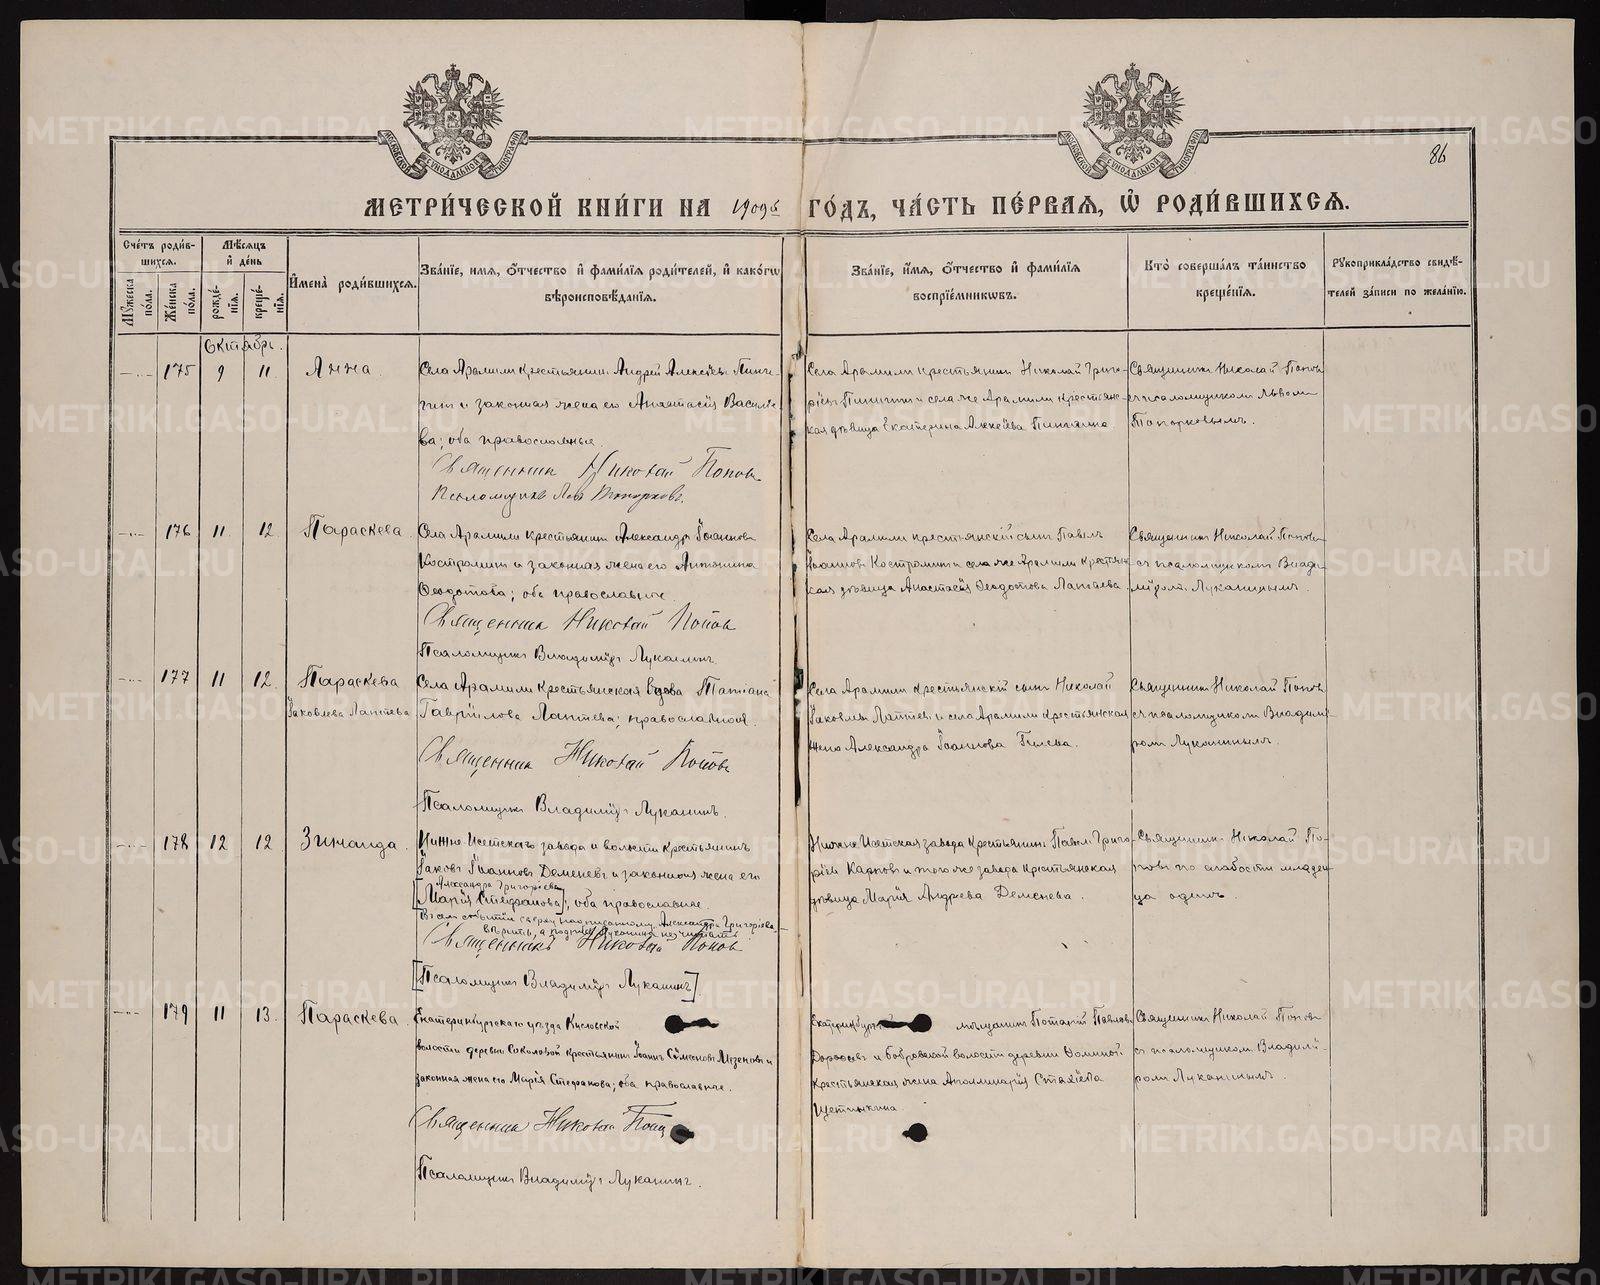 МОСКОВСКОЙ СѴНОДАЛЬНОЙ ТИПОГРАФІИ
МОСКОВСКОЙ СѴНОДАЛЬНОЙ ТИПОГРАФІИ
86
МЕТРИ́ЧЕСКОЙ КНИ́ГИ НА 1909й ГО́ДЪ, ЧА́СТЬ ПЕ́РВАЯ, Ѽ РОДИ́ВШИХСЯ.
Сче́тъ роди́в-
шихся.
Мѣ́сяцъ
и҆ де́нь
Мꙋ́жеска по́ла.
Же́нска по́ла.
рожде́-нїя.
креще́-нїя.
И҆мена̀ роди́вшихся.
Зва́нїе, и҆мя, ѻ҆́тчество и҆ фами́лїя роди́телей, и҆ како́гѡ
вѣроисповѣ́данїя.
Зва́нїе, и҆́мя, ѻ҆́тчество и҆ фами́лїя
воспрїе́мникѡвъ.
Кто̀ соверша́лъ та́инство
креще́нїя.
Рꙋкоприкла́дство свидѣ́-
телей за́писи по жела́нїю.
Октябрь.
175 9 11. Анна.
Села Арамили крестьянинъ Андрей Алексѣевъ Пини-
гинъ и законная жена его Анастасія Василье-
ва; оба православные.
Священникъ Николай Поповъ
Псаломщикъ Левъ Топорковъ.
Села Арамили крестьянинъ Николай Григо-
рьевъ Пинигинъ и села же Арамили крестьянс-
кая дѣвица Екатерина Алексѣева Пинигина.
Священникъ Николай Поповъ
съ псаломщикомъ Львомъ
Топорковымъ.
176 11 12 Параскева
Села Арамили крестьянинъ Александръ Іоанновъ
Костроминъ и законная жена его Антонина
Ѳеодотова; оба православные.
Священникъ Николай Поповъ
Псаломщикъ Владиміръ Луканинъ.
Села Арамили крестьянскій сынъ Павелъ
Іоанновъ Костроминъ и села же Арамили крестьянс-
кая дѣвица Анастасія Ѳеодотова Лаптева.
Священникъ Николай Поповъ
съ псаломщикомъ Влади-
міромъ Луканинымъ.
177 11 12. Параскева
Іаковлева Лаптева
Села Арамили крестьянская вдова Татіана
Гаврилова Лаптева; православная.
Священникъ Николай Поповъ
Псаломщикъ Владиміръ Луканинъ.
Села Арамили крестьянскій сынъ Николай
Іаковлевъ Лаптевъ и села Арамили крестьянская
жена Александра Іоаннова
Священникъ Николай Поповъ
съ псаломщикомъ Владимі-
ромъ Луканинымъ.
178 12 12 Зинаида.
Нижне-Исетскаго завода и волости крестьянинъ
Іаковъ Іоанновъ Деменевъ и законная жена его
Александра Григорьева
[Марія Стефанова]; оба православные.
В сей событіи сверху надписанному Александра Григорьева
вѣрить, а подпись Луканина не читать
Священникъ Николай Поповъ
[Псаломщикъ Владиміръ Луканинъ]
Нижне-Исетскаго завода крестьянинъ Павелъ Григо-
рьевъ Карповъ и того же завода крестьянская
дѣвица Марія Андреева Деменева.
Священникъ Николай По-
повъ по слабости младен-
ца одинъ.
179 11 13. Параскева.
Екатеринбургскаго уѣзда Кисловской
волости деревни Соколовой крестьянинъ Іоаннъ Семеновъ Мезеновъ и
законная жена его Марія Стефанова; оба православные.
Священникъ Николай Попов
Псаломщикъ Владиміръ Луканинъ.
Екатеринбургскій мѣщанинъ Потапій Павловъ
Дороѳеевъ и Бобровской волости деревни
крестьянская жена Аполлинарія Стахіева
Щетинкина
Священникъ Николай Поповъ
съ псаломщикомъ Владимі-
ромъ Луканинымъ.
METRIKI.GASO-URAL.RU